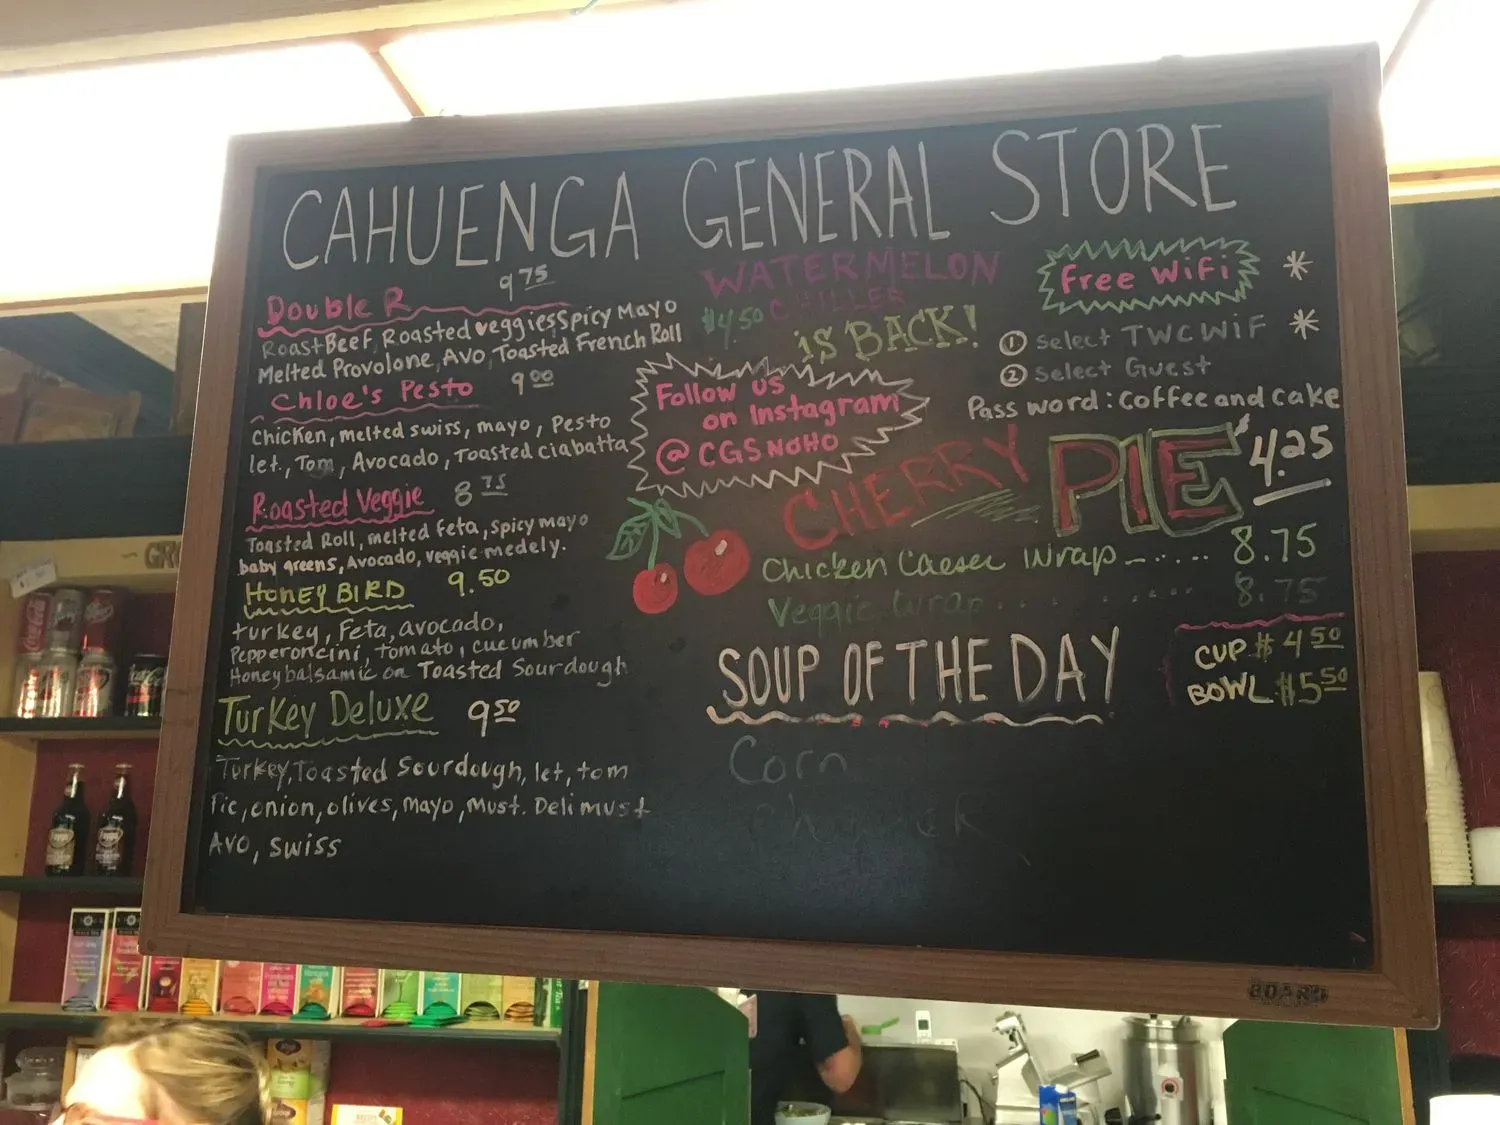 CAHUENGA GENERAL STORE
Double R 9 75
Roast Beef, Roasted veggies Spicy Mayo
Melted Provolone, Avo, Toasted French Roll
Chloe's Pesto 9 00
Chicken, melted swiss, mayo, Pesto
let., Tom, Avocado, Toasted ciabatta
Roasted Veggie 8 75
Toasted Roll, melted feta, spicy mayo
baby greens, Avocado, veggie medely.
HONEY BIRD 9.50
turkey, Feta, avocado,
Pepperoncini, tomato, cucumber
Honey balsamic on Toasted Sourdough
Turkey Deluxe 9 50
Turkey, Toasted Sourdough, let, tom
Pic, onion, olives, Mayo, Must. Deli must
Avo, swiss
WATERMELON
CHILLER
$4.50
iS BACK!
Follow us
on Instagram
@CGSNOHO
Free WiFi *
1 Select TWCWiF *
2 Select Guest
Password: coffeeandcake
CHERRY PIE $4.25
Chicken Caeser Wrap 8.75
Veggie Wrap 8.75
SOUP OF THE DAY
CUP $4 50
BOWL $5 50
Corn
BOARD